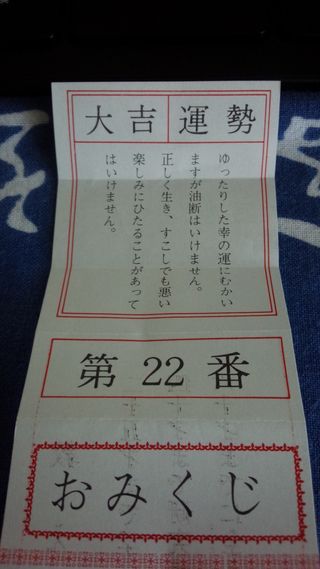 大吉
運勢
ゆったりした幸の運にむかい
ますが油断はいけません。
正しく生き、すこしでも悪い
楽しみにひたることがあって
はいけません。
第22番
おみくじ